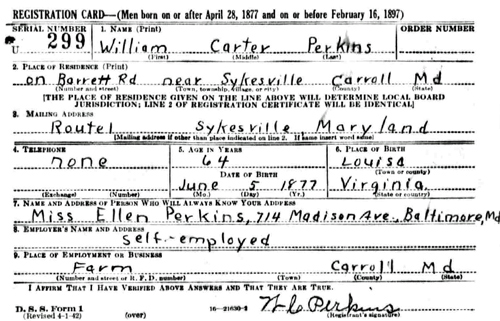 REGISTRATION CARD—(Men born on or after April 28, 1877 and on or before February 16, 1897)
SERIAL NUMBER 1. NAME (Print) ORDER NUMBER
U 299 William Carter Perkins
(First) (Middle) (Last)
2. PLACE OF RESIDENCE (Print)
on Barrett Rd near Sykesville Carroll Md
(Number and street) (Town, township, village, or city) (County) (State)
[THE PLACE OF RESIDENCE GIVEN ON THE LINE ABOVE WILL DETERMINE LOCAL BOARD
JURISDICTION; LINE 2 OF REGISTRATION CERTIFICATE WILL BE IDENTICAL]
3. MAILING ADDRESS
Route 1 Sykesville, Maryland
[Mailing address if other than place indicated on line 2. If same insert word same]
4. TELEPHONE 5. AGE IN YEARS 6. PLACE OF BIRTH
none 64 Louisa
DATE OF BIRTH (Town or county)
June 5 1877 Virginia
(Exchange) (Number) (Mo.) (Day) (Yr.) (State or country)
7. NAME AND ADDRESS OF PERSON WHO WILL ALWAYS KNOW YOUR ADDRESS
Miss Ellen Perkins, 714 Madison Ave., Baltimore, Md
8. EMPLOYER'S NAME AND ADDRESS
Self-employed
9. PLACE OF EMPLOYMENT OR BUSINESS
Farm Carroll Md
(Number and street or R. F. D. number) (Town) (County) (State)
I AFFIRM THAT I HAVE VERIFIED ABOVE ANSWERS AND THAT THEY ARE TRUE.
D. S. S. Form 1 W C Perkins
(Revised 4-1-42) (over) 16—21630-2 (Registrant's signature)